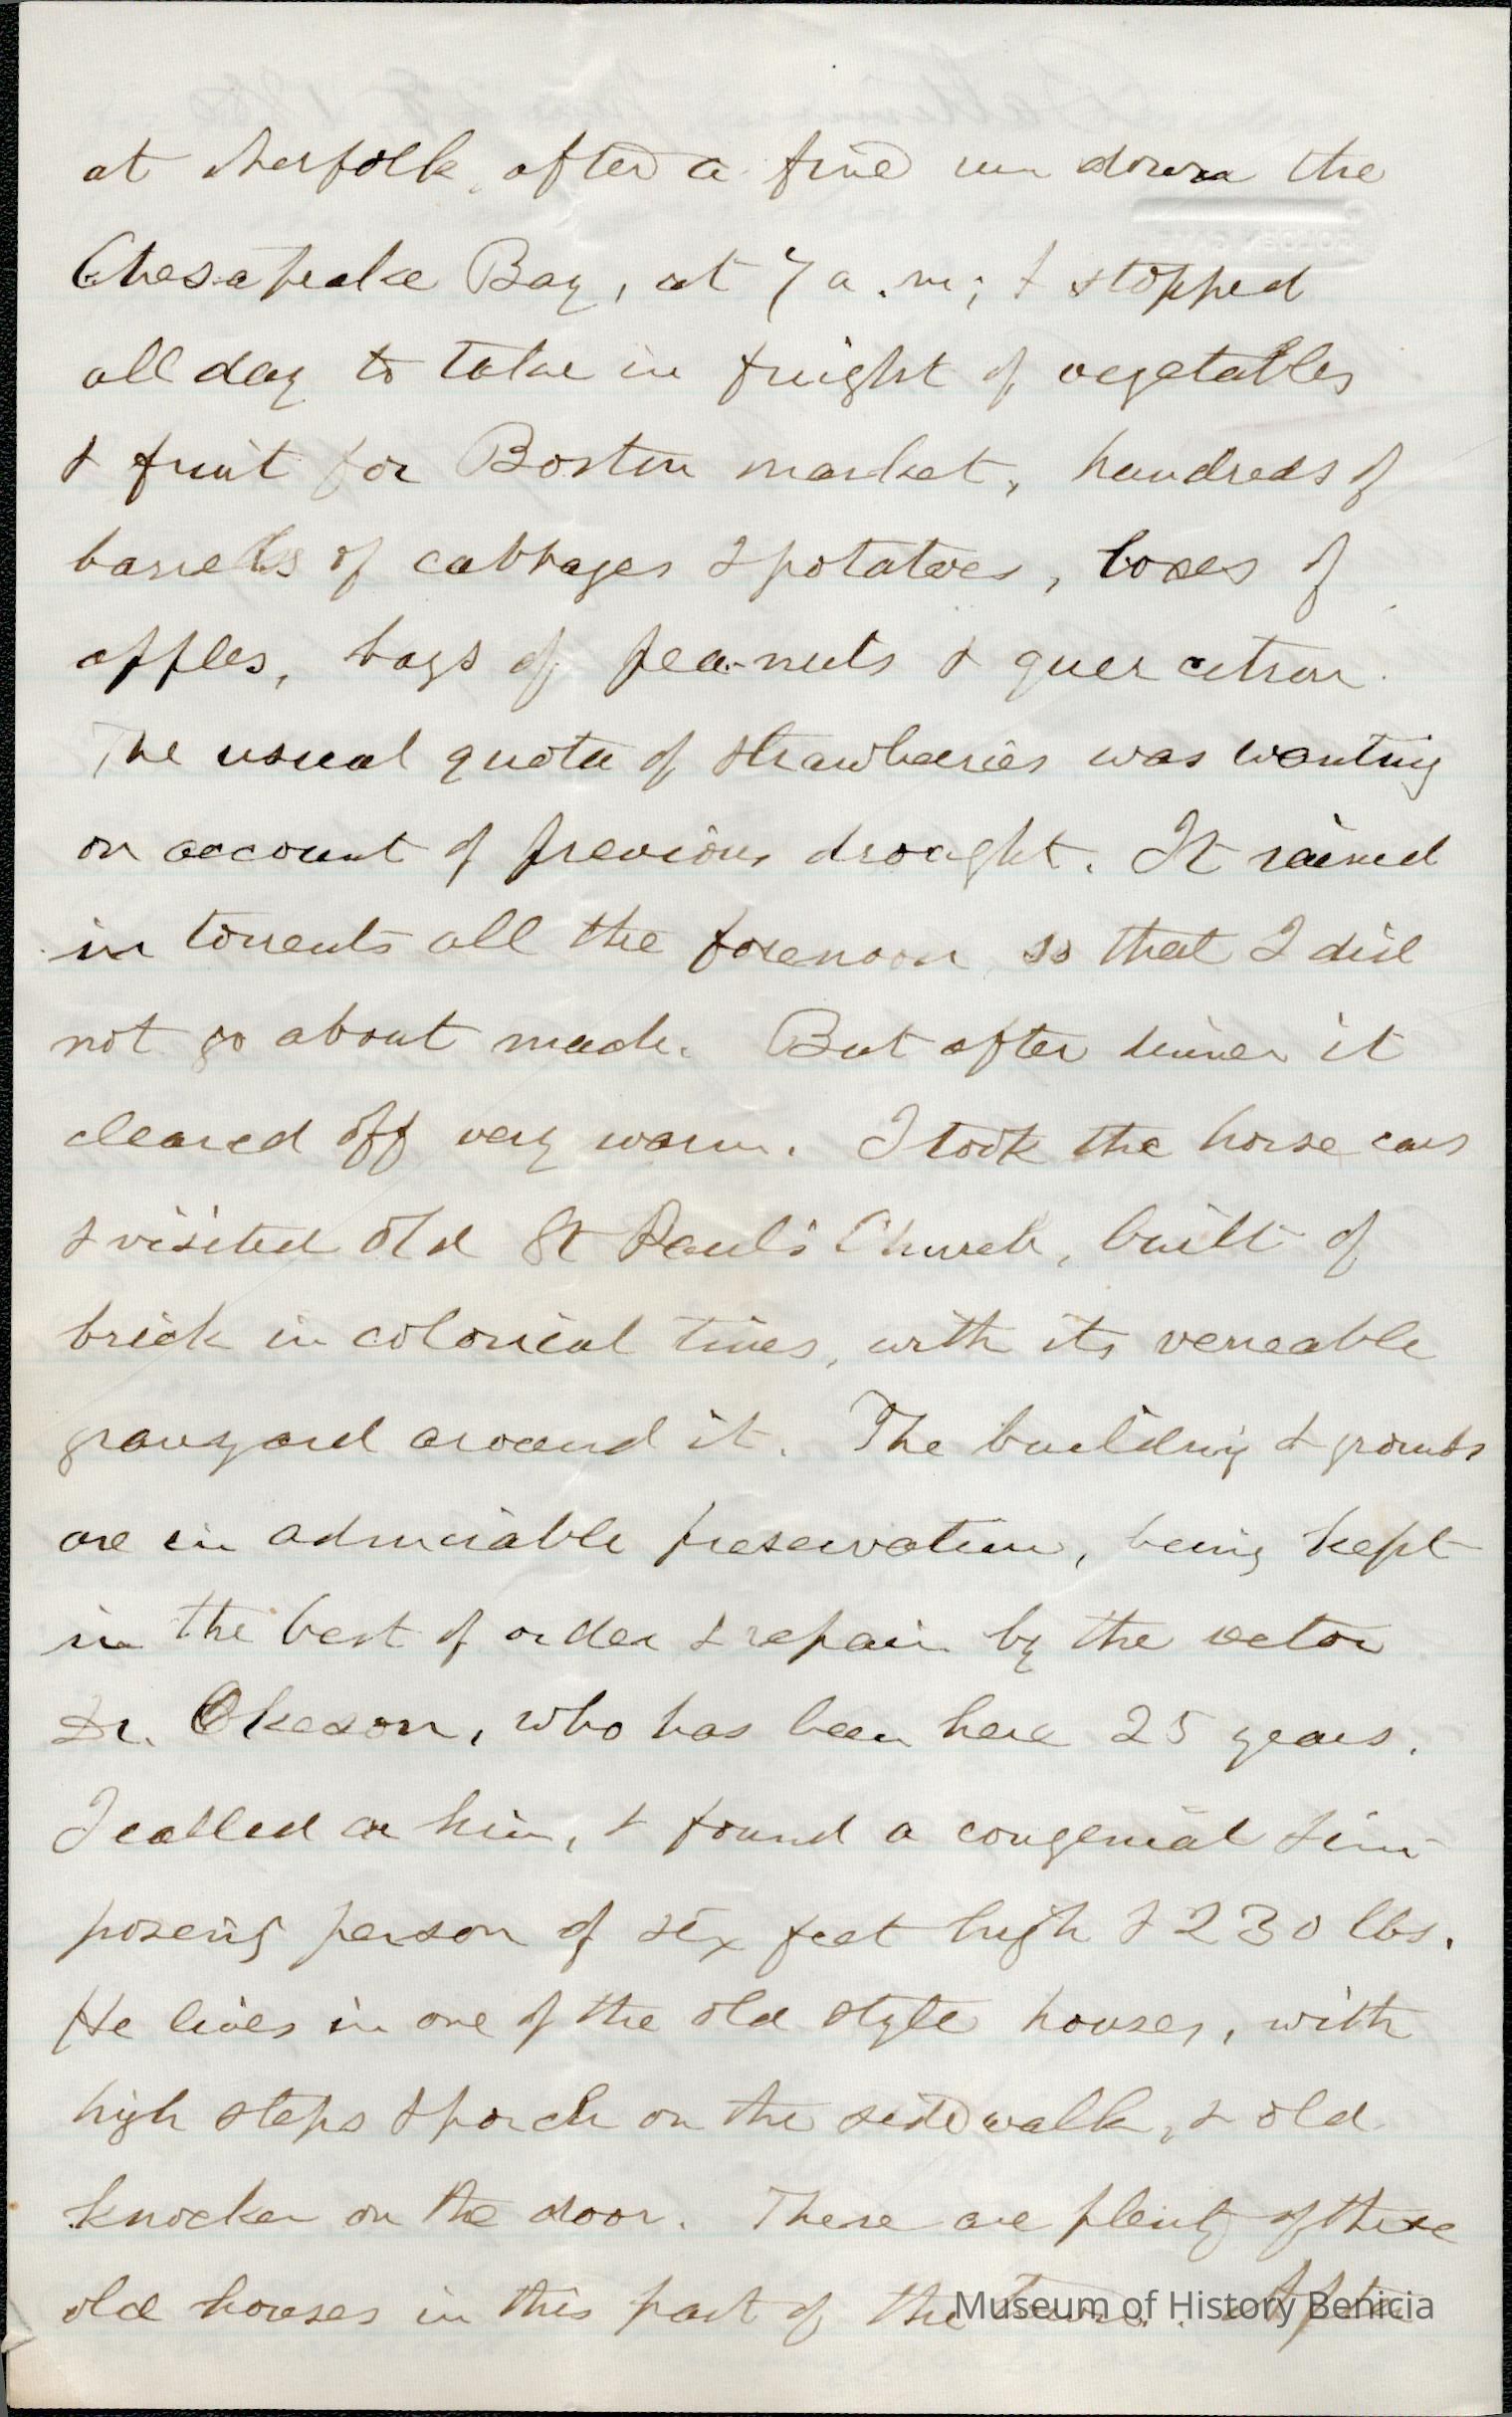 at Norfolk, after a fine run down the
Chesapeake Bay, at 7 a.m; & stopped
all day to take in freight of vegetables
& fruit for Boston market, hundreds of
barrells of cabbages & potatoes, boxes of
apples, bags of pea-nuts & quercitron.
The usual quota of strawberries was wanting
on account of previous drought. It rained
in torrents all the forenoon so that I did
not go about much. But after dinner it
cleared off very warm. I took the horse cars
& visited old St Paul's Church, built of
brick in colonial times, with its venerable
graveyard around it. The building & grounds
are in admirable preservation, being kept
in the best of order & repair by the rector
Dr. Okeson, who has been here 25 years.
I called on him, & found a congenial & im-
posing person of six feet high & 230 lbs.
He lives in one of the old style houses, with
high steps & porch on the sidewalk, & old
knocker on the door. There are plenty of these
old houses in this part of the town. After
Museum of History Benicia